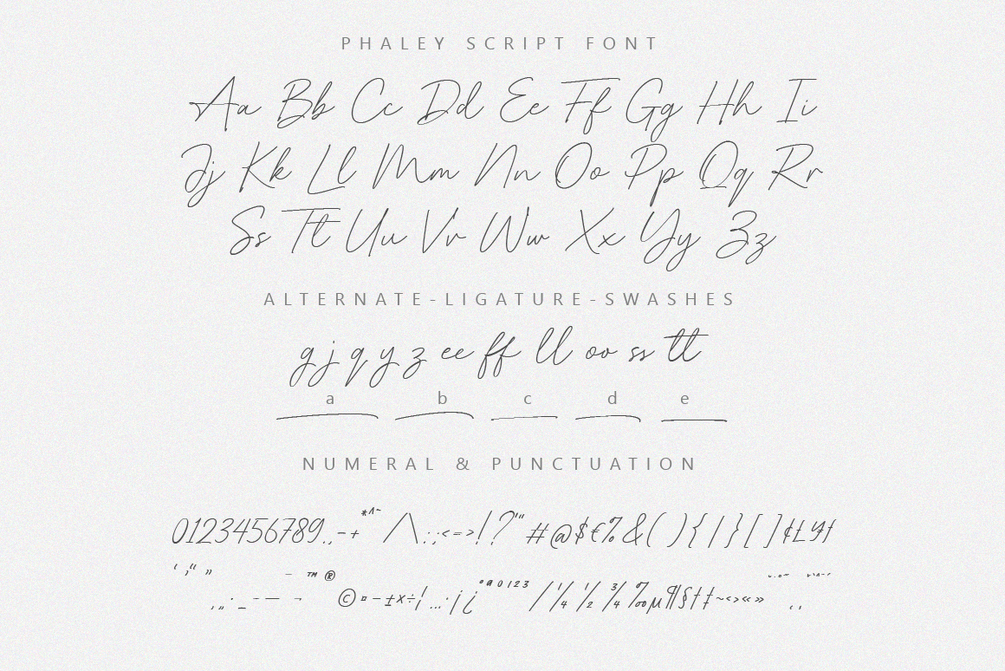 PHALEY SCRIPT FONT
Aa Bb Cc Dd Ee Ff Gg Hh Ii
Jj Kk Ll Mm Nn Oo Pp Qq Rr
Ss Tt Uu Vv Ww Xx Yy Zz
ALTERNATE-LIGATURE-SWASHES
g j q y z ee ff ll oo ss tt
a b c d e
NUMERAL & PUNCTUATION
0123456789.,-+*^~/\.:;<=>!?'"#@$€%&(){|}[]¢£¥ƒ
‘ ‚“ ” – ™ ®
‚„·_-—¬©¤-±×÷¦…·¡¿ºª0123/¼½¾‰µ¶§†‡~‹›«»